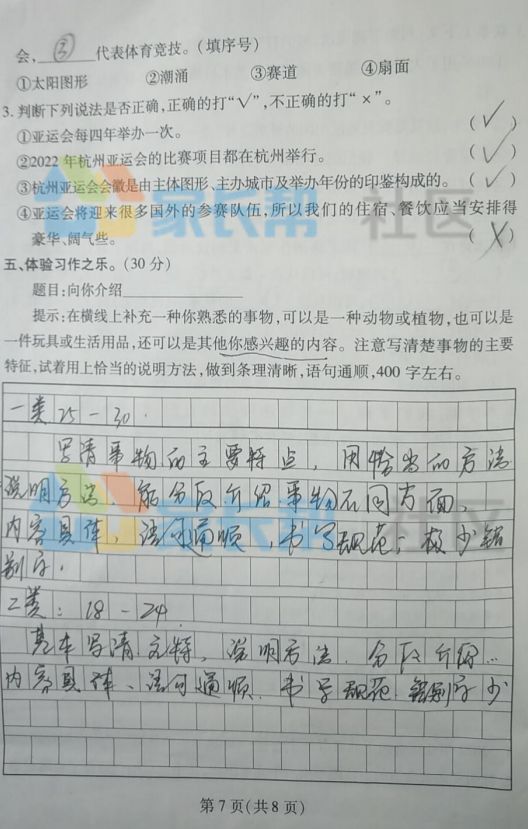 会、③代表体育竞技。(填序号)
①太阳图形 ②潮涌 ③赛道 ④扇面
3.判断下列说法是否正确,正确的打“√”,不正确的打“×”。
①亚运会每四年举办一次。 (√)
②2022年杭州亚运会的比赛项目都在杭州举行。 (√)
③杭州亚运会会徽是由主体图形、主办城市及举办年份的印鉴构成的。 (√)
④亚运会将迎来很多国外的参赛队伍,所以我们的住宿、餐饮应当安排得
豪华、阔气些。 (×)
家长帮 社区
五、体验习作之乐。(30分)
题目:向你介绍
提示:在横线上补充一种你熟悉的事物,可以是一种动物或植物,也可以是
一件玩具或生活用品,还可以是其他你感兴趣的内容。注意写清楚事物的主要
特征,试着用上恰当的说明方法,做到条理清晰,语句通顺,400字左右。
一类25-30.
写清事物的主要特点,用恰当的方法
说明方法 能分段介绍事物不同方面,
内容具体,语句通顺,书写规范;极少错
别字.
家长帮 社区
二类:18-24
基本写清 特,说明方法.分段介绍…
内容具体、语句通顺.书写规范 错别字少
第7页(共8页)